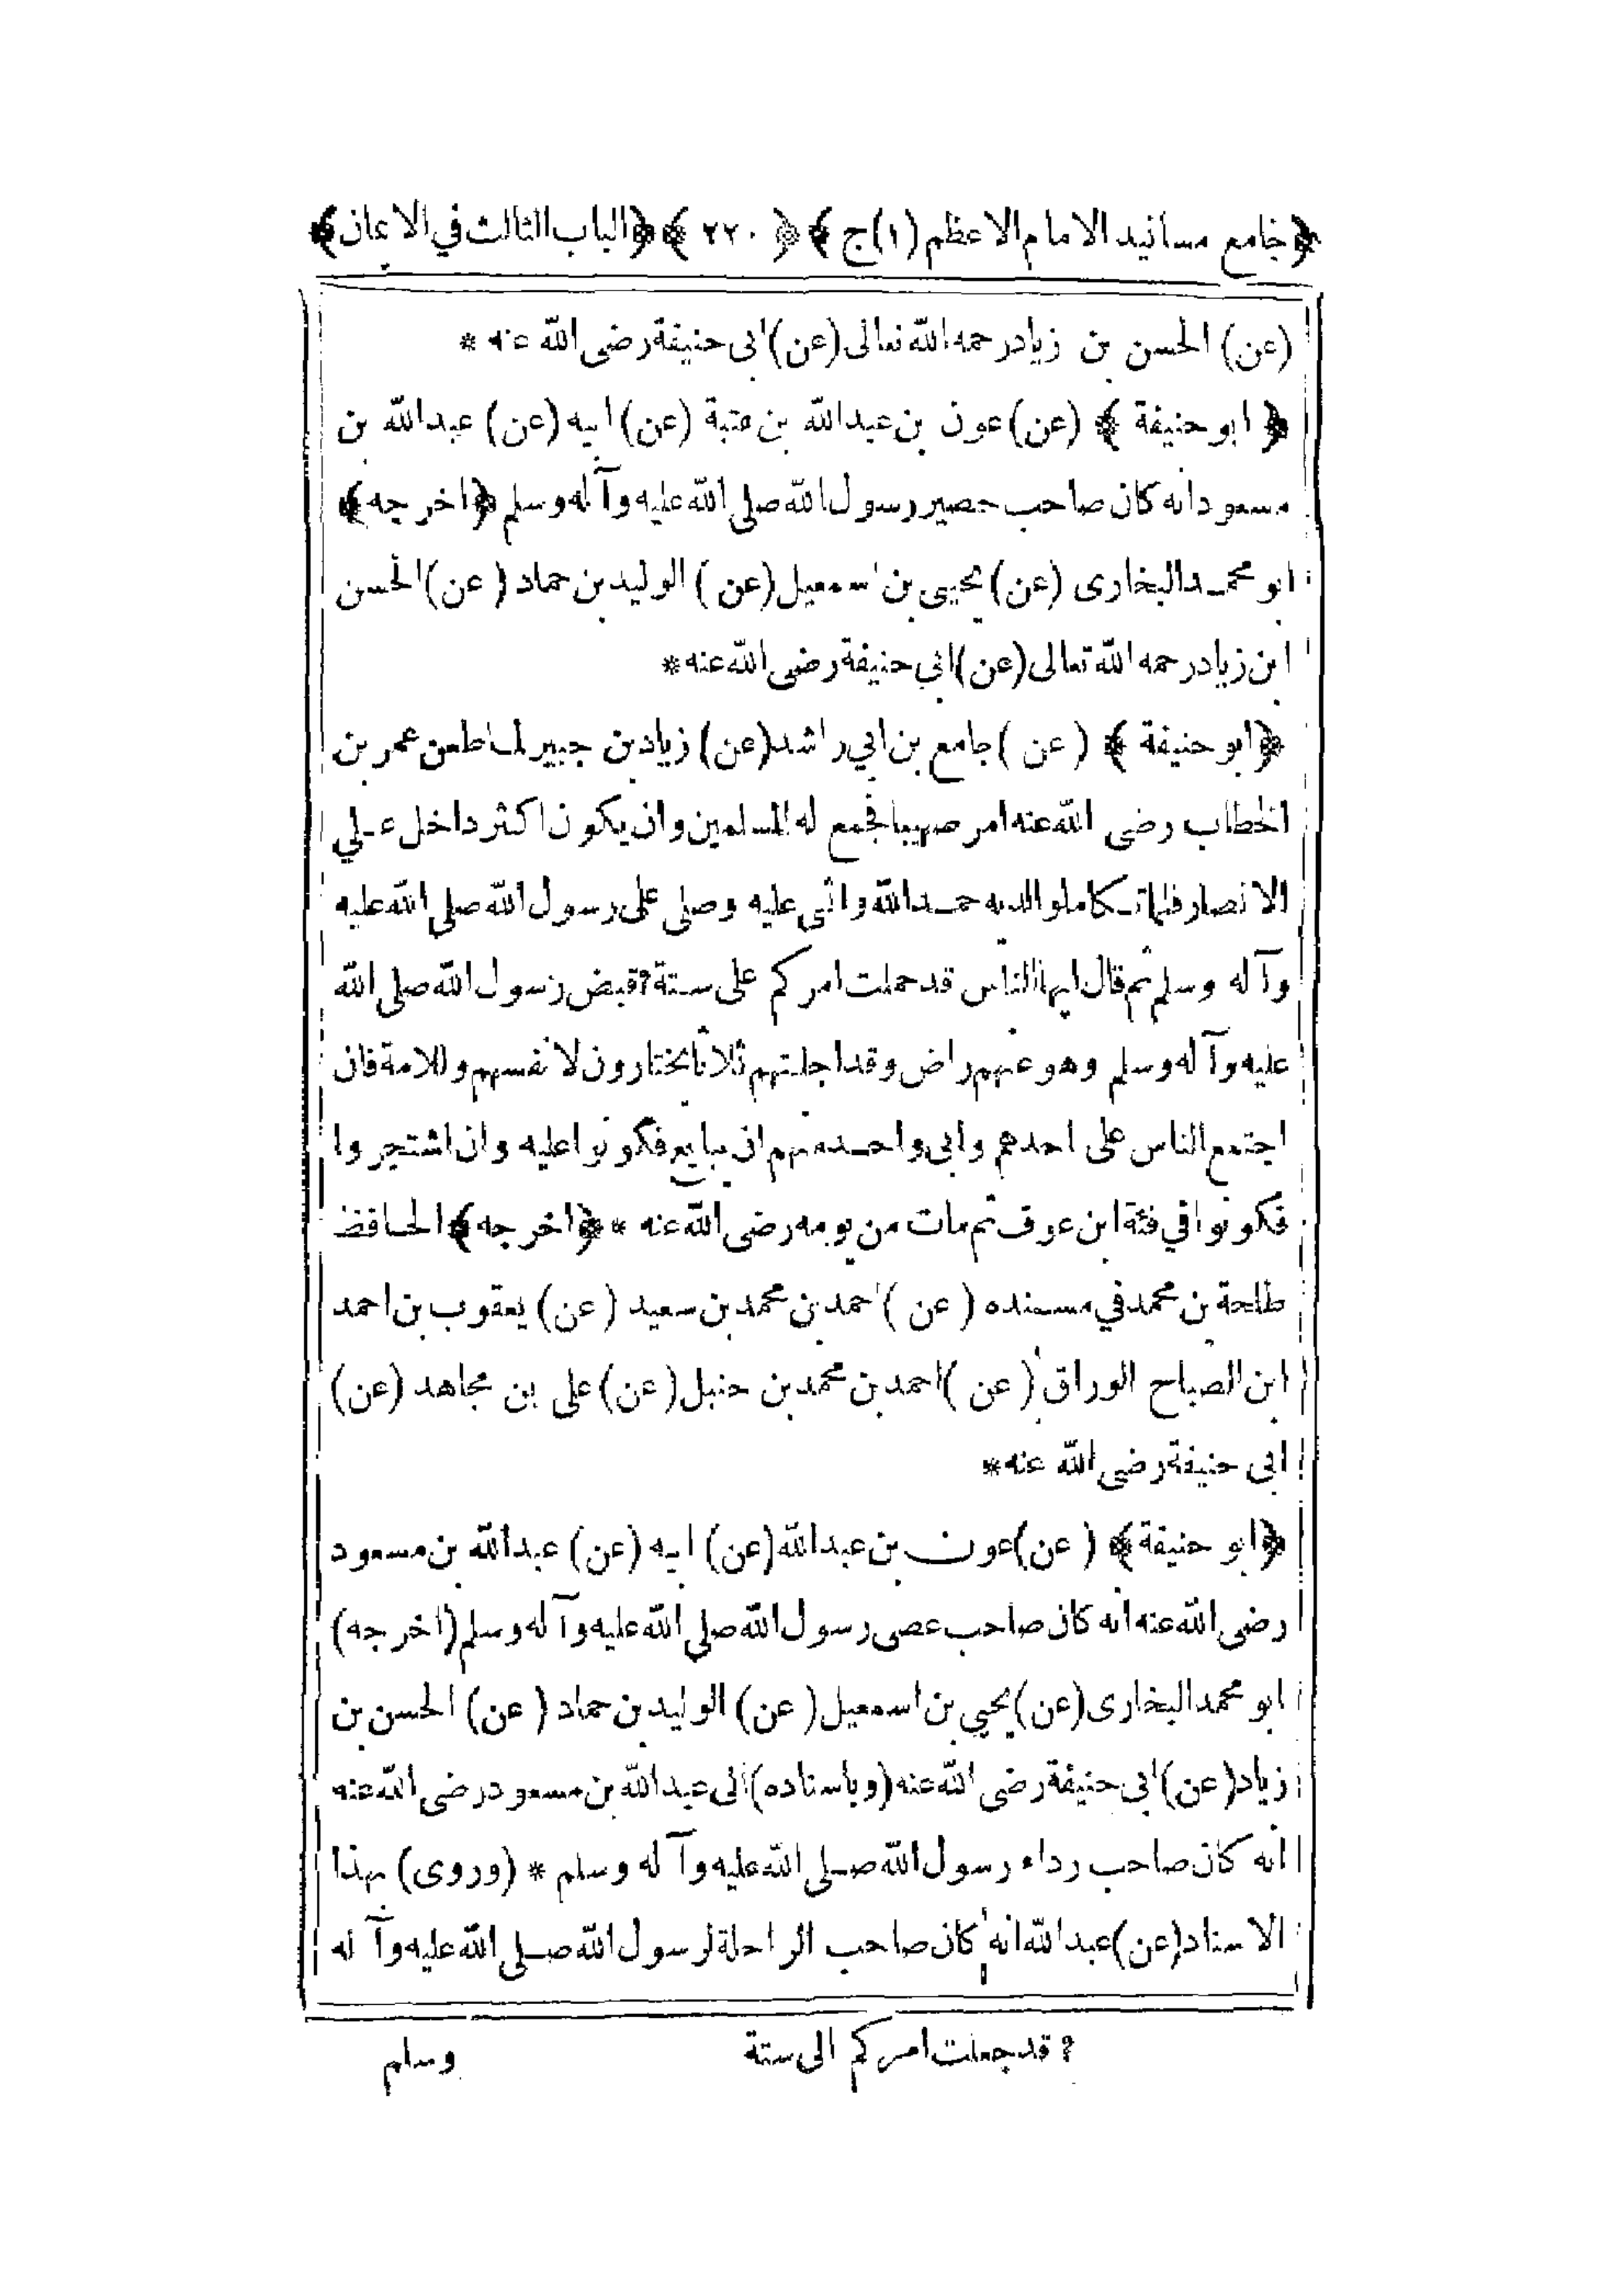 ﴿جامع مسانيد الامام الاعظم (١)ج﴾ ﴿٢٢٠﴾ ﴿الباب الثالث في الايمان﴾
(عن) الحسن بن زياد رحمه الله تعالى (عن) ابى حنيفة رضى الله عنه *
﴿ابو حنيفة﴾ (عن) عون بن عبدالله بن عتبة (عن) ابيه (عن) عبدالله بن
مسعود انه كان صاحب حصير رسول الله صلى الله عليه وآله وسلم ﴿اخرجه﴾
ابو محمد البخارى (عن) يحيى بن اسمعيل (عن) الوليد بن حماد (عن) الحسن
ابن زياد رحمه الله تعالى (عن) ابي حنيفة رضى الله عنه *
﴿ابو حنيفة﴾ (عن) جامع بن ابي راشد (عن) زياد بن جبير لما طعن عمر بن
الخطاب رضى الله عنه امر صهيبا فجمع له المسلمين وان يكون اكثر داخل علي
الانصار فلما تكاملوا لديه حمد الله واثنى عليه وصلى على رسول الله صلى الله عليه
وآله وسلم ثم قال ايها الناس قد حملت امركم على ستة ٢ قبض رسول الله صلى الله
عليه وآله وسلم وهو عنهم راض وقد اجلتهم ثلاثا يختارون لانفسهم وللامة فان
اجتمع الناس على احدهم وابى واحد منهم ان يبايع فكونوا عليه وان اشتجروا
فكونوا في فئة ابن عوف ثم مات من يومه رضى الله عنه * ﴿اخرجه﴾ الحافظ
طلحة بن محمد في مسنده (عن) احمد بن محمد بن سعيد (عن) يعقوب بن احمد
ابن الصباح الوراق (عن) احمد بن محمد بن حنبل (عن) على بن مجاهد (عن)
ابى حنيفة رضى الله عنه *
﴿ابو حنيفة﴾ (عن) عون بن عبدالله (عن) ابيه (عن) عبدالله بن مسعود
رضى الله عنه انه كان صاحب عصى رسول الله صلى الله عليه وآله وسلم (اخرجه)
ابو محمد البخارى (عن) يحيي بن اسمعيل (عن) الوليد بن حماد (عن) الحسن بن
زياد (عن) ابى حنيفة رضى الله عنه (وباسناده) الى عبدالله بن مسعود رضى الله عنه
انه كان صاحب رداء رسول الله صلى الله عليه وآله وسلم * (وروى) بهذا
الاسناد (عن) عبدالله انه كان صاحب الراحلة لرسول الله صلى الله عليه وآله
٢ قد جعلت امركم الى ستة
وسلم